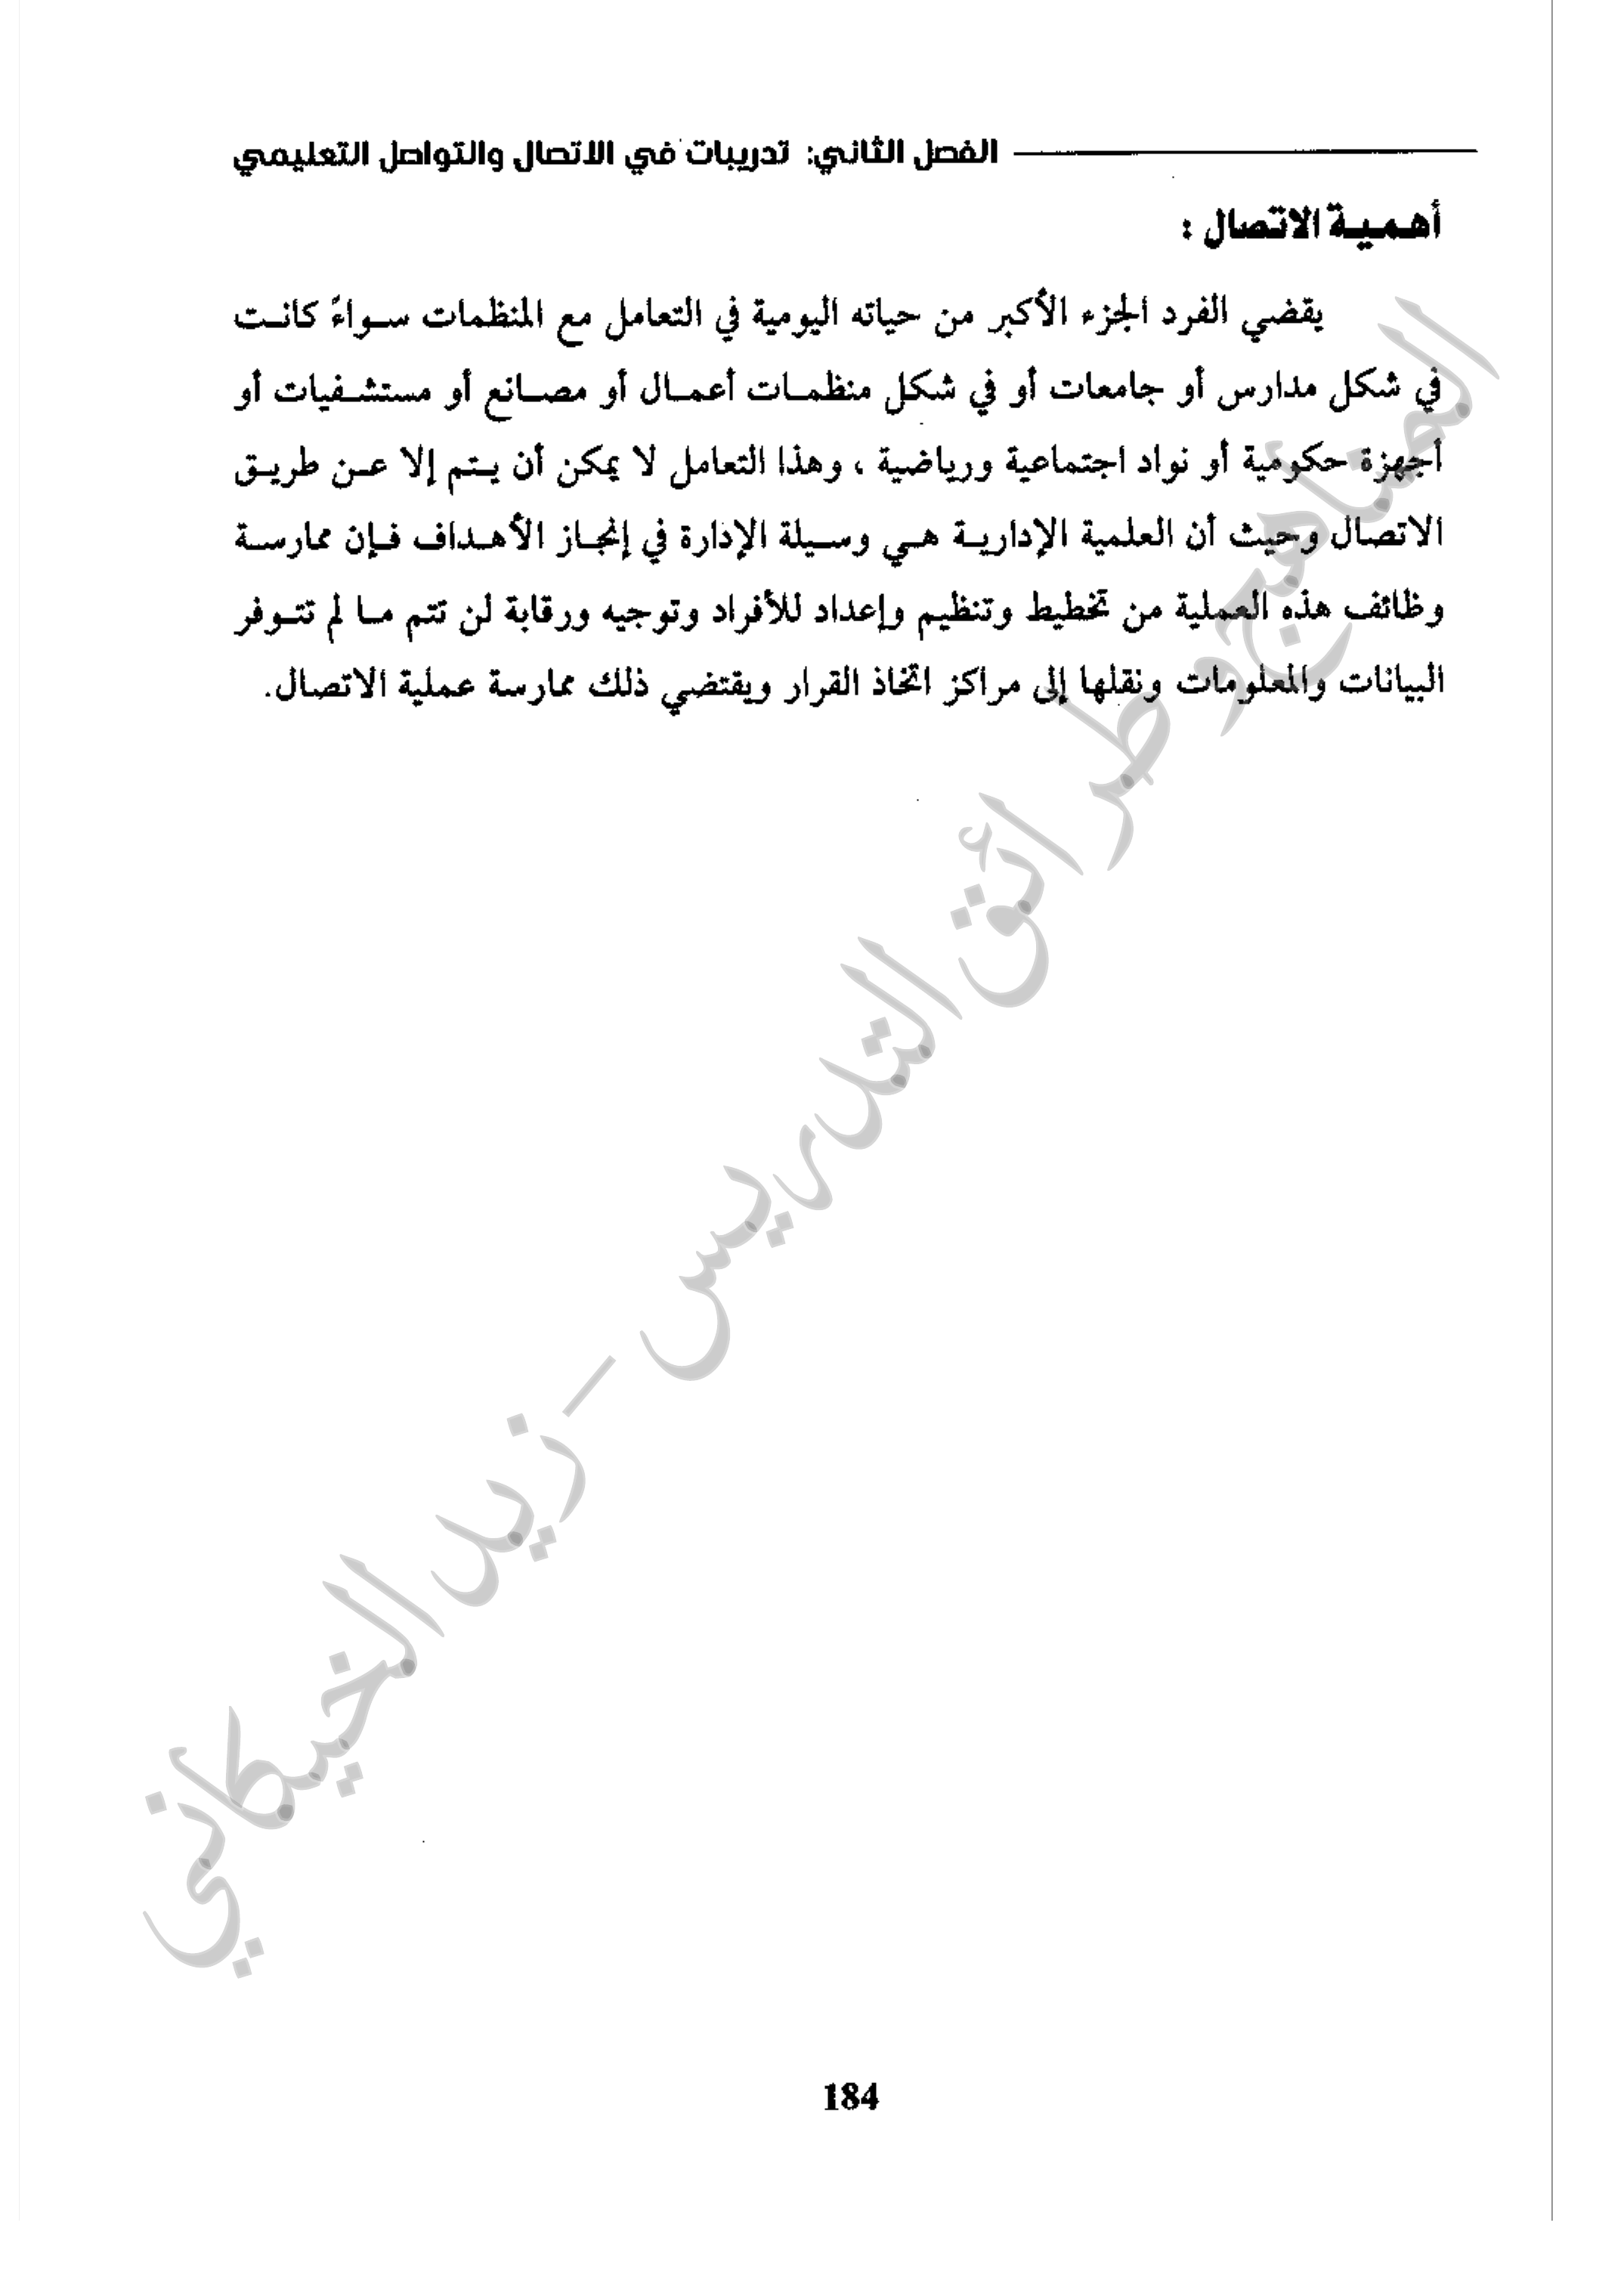 الفصل الثاني: تدريبات في الاتصال والتواصل التعليمي
أهمية الاتصال :
يقضي الفرد الجزء الأكبر من حياته اليومية في التعامل مع المنظمات سواءً كانت
في شكل مدارس أو جامعات أو في شكل منظمات أعمال أو مصانع أو مستشفيات أو
أجهزة حكومية أو نواد اجتماعية ورياضية ، وهذا التعامل لا يمكن أن يتم إلا عن طريق
الاتصال وحيث أن العلمية الإدارية هي وسيلة الإدارة في إنجاز الأهداف فإن ممارسة
وظائف هذه العملية من تخطيط وتنظيم وإعداد للأفراد وتوجيه ورقابة لن تتم ما لم تتوفر
البيانات والمعلومات ونقلها إلى مراكز اتخاذ القرار ويقتضي ذلك ممارسة عملية الاتصال.
المناهج وطرائق التدريس - زيد الخيكاني
184